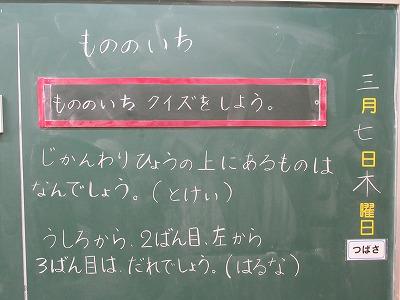 もののいち
もののいち クイズをしよう。
じかんわりひょうの上にあるものは
なんでしょう。(とけい)
うしろから、2ばん目、左から
3ばん目は、だれでしょう。(はるな)
三月七日木曜日
つばさ